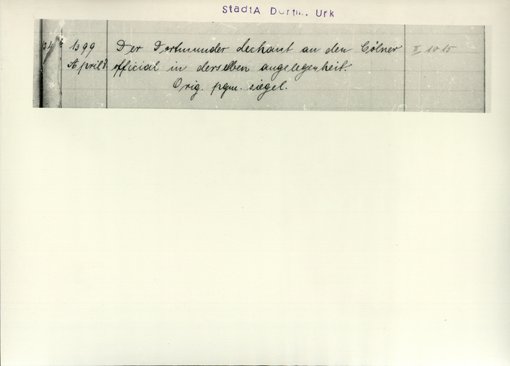 StadtA Dortm. Urk
1399 Der Dortmunder Dechant an den Cölner
April official in derselben angelegenheit.
Orig. pgm. siegel.